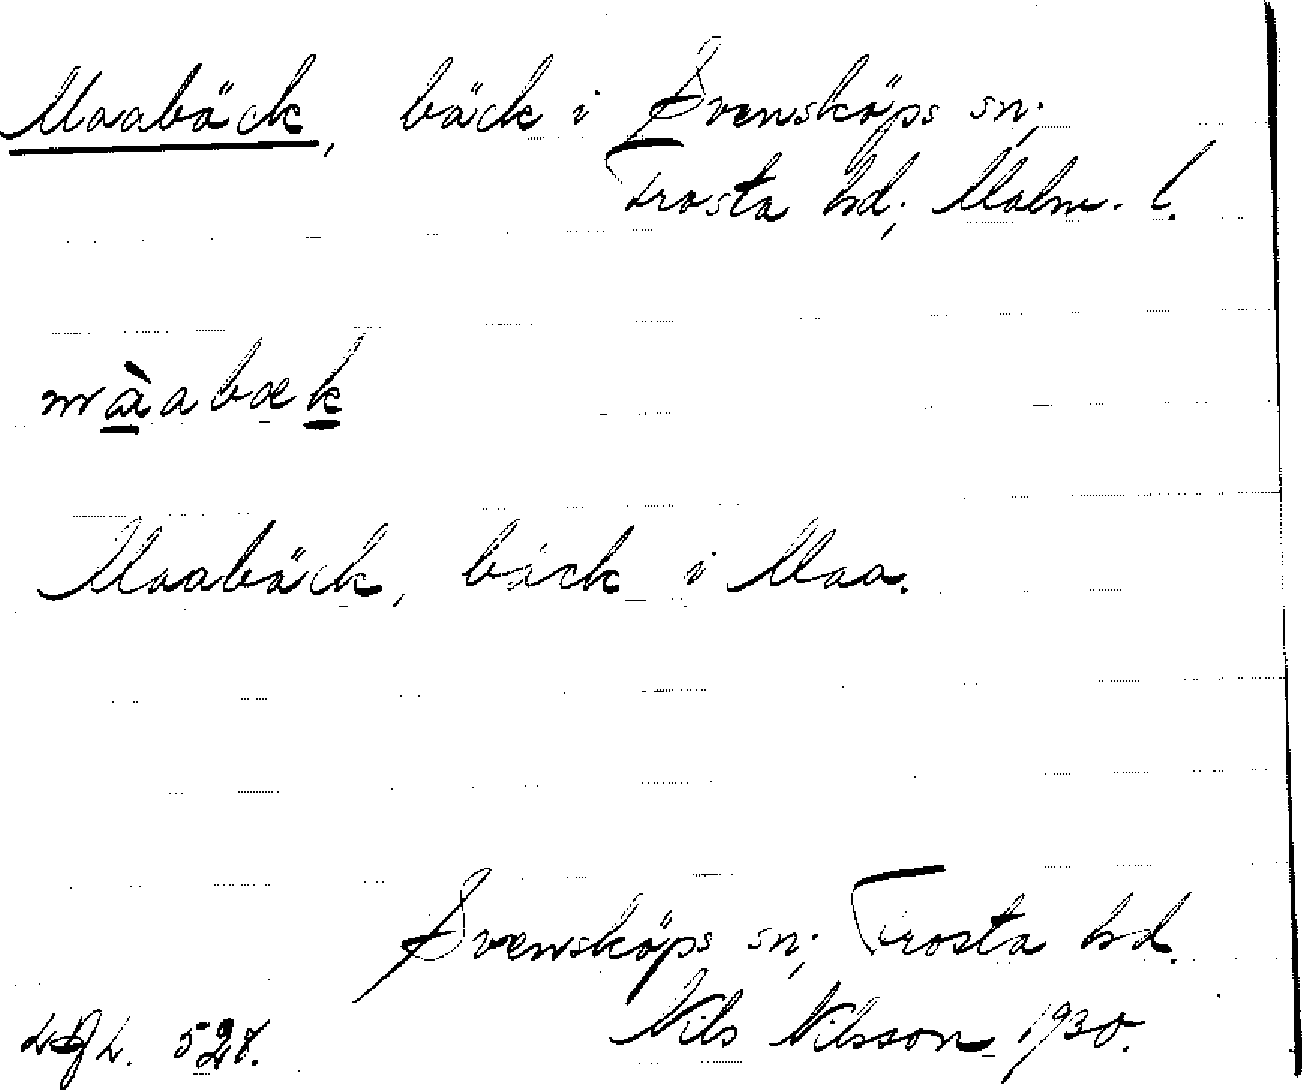 Maabäck, bäck i Svensköps sn;
Frosta hd; Malm. l.
màabæk
Maabäck, bäck i Maa.
Svensköps sn; Frosta hd.
Nils Nilsson 1930.
528.